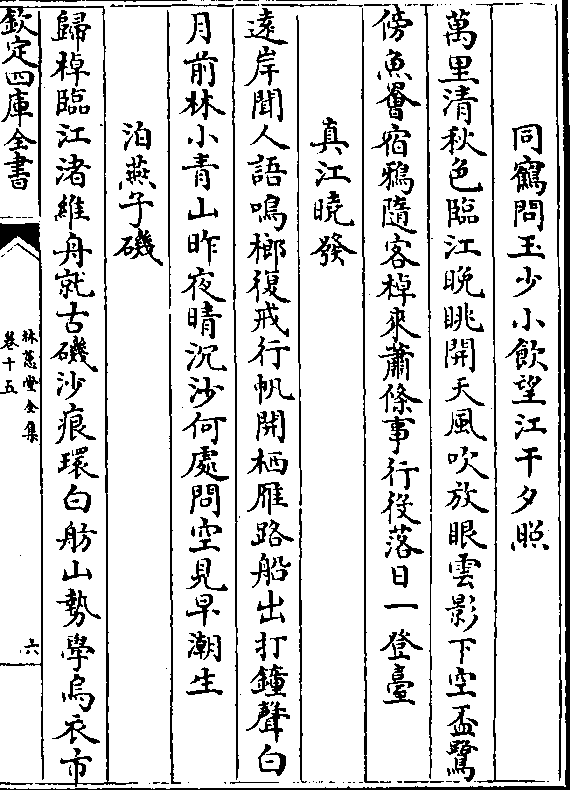 同鶴問玉少小飲望江干夕照
萬里清秋色臨江晚眺開天風吹放眼雲影下空盃鷺
傍魚罾宿鴉隨客棹來蕭條事行役落日一登臺
真江曉發
遠岸聞人語鳴榔復戒行帆開栖雁路船出打鐘聲白
月前林小青山昨夜晴沉沙何處問空見早潮生
泊燕子磯
歸棹臨江渚維舟就古磯沙痕環白舫山勢學烏衣市
欽定四庫全書
林蕙堂全集
卷十五
六